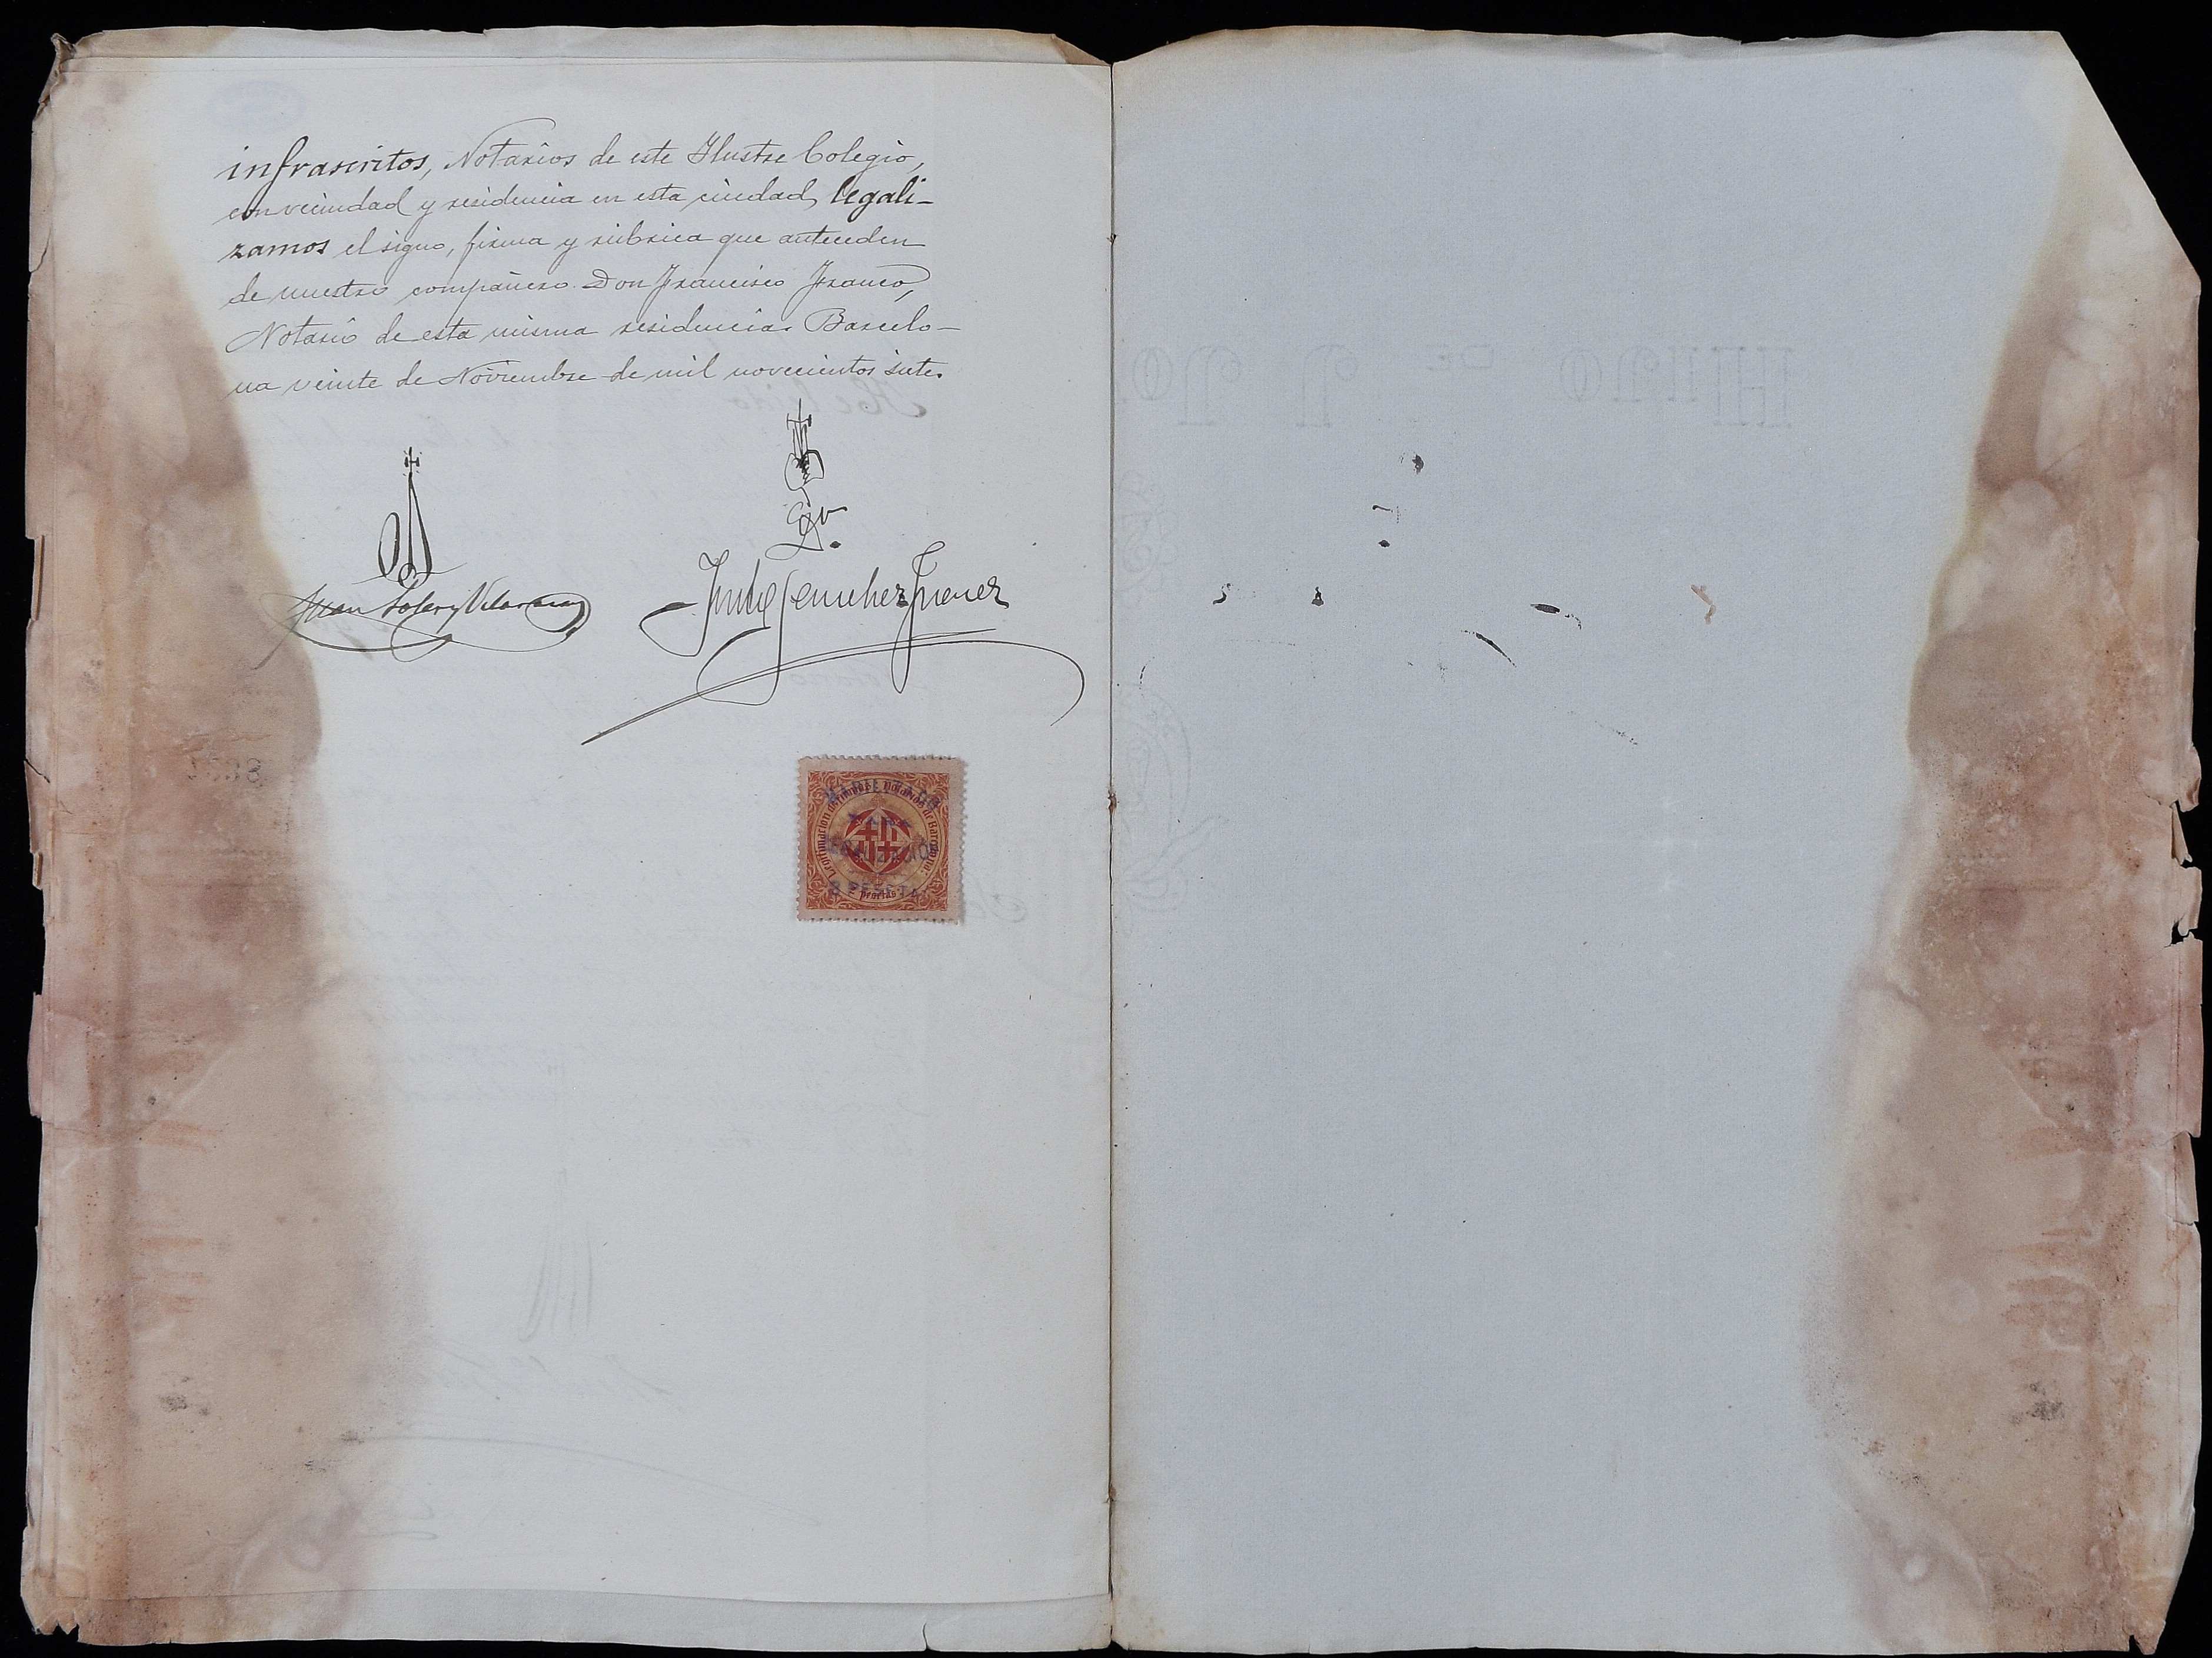 infrascritos, Notarios de este Ilustre Colegio,
con vecindad y residencia en esta ciudad, legali-
zamos el signo, firma y rúbrica que anteceden
de nuestro compañero Don Francisco Franco,
Notario de esta misma residencia. Barcelo-
na veinte de Noviembre de mil novecientos siete.
Juan Soler y Vilarasau
Sanchez
Legitimaciones y Notarios de Barcelona
HABILITADO
PARA
LEGALIZACION
2 PESETAS
pesetas
HIJO DE J. JO